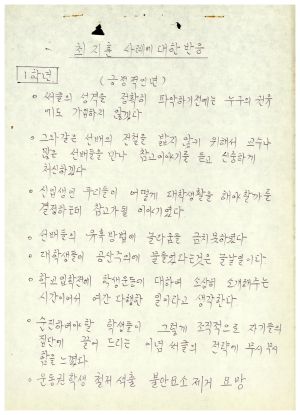 최지훈 사례에 대한 반응
1학년
(긍정적인면)
o 써클의 성격을 정확히 파악하기전에는 누구의 권유
에도 가입하지 않겠다
o 그와같은 선배의 전철을 밟지 않기 위해서 교수나
많은 선배들을 만나 참고이야기를 듣고 신중하게
처신하겠다
o 신입생인 우리들이 어떻게 대학생활을 해야할까를
결정하는데 참고가 될 이야기였다
o 선배들의 유혹방법에 놀라움을 금치 못하겠다
o 대학생들이 공산주의에 물들었다는것은 놀날일이다
o 학교입학전에 학생운동에 대하여 소상히 소개해주는
시간이어서 여간 다행한 일이라고 생각한다
o 순진하여야할 학생들이 그렇게 조직적으로 자기들의
집단에 끌어 드리는 이념써클의 전략에 무시무시
함을 느꼈다
o 운동권학생 철저색출 불안요소제거 요망